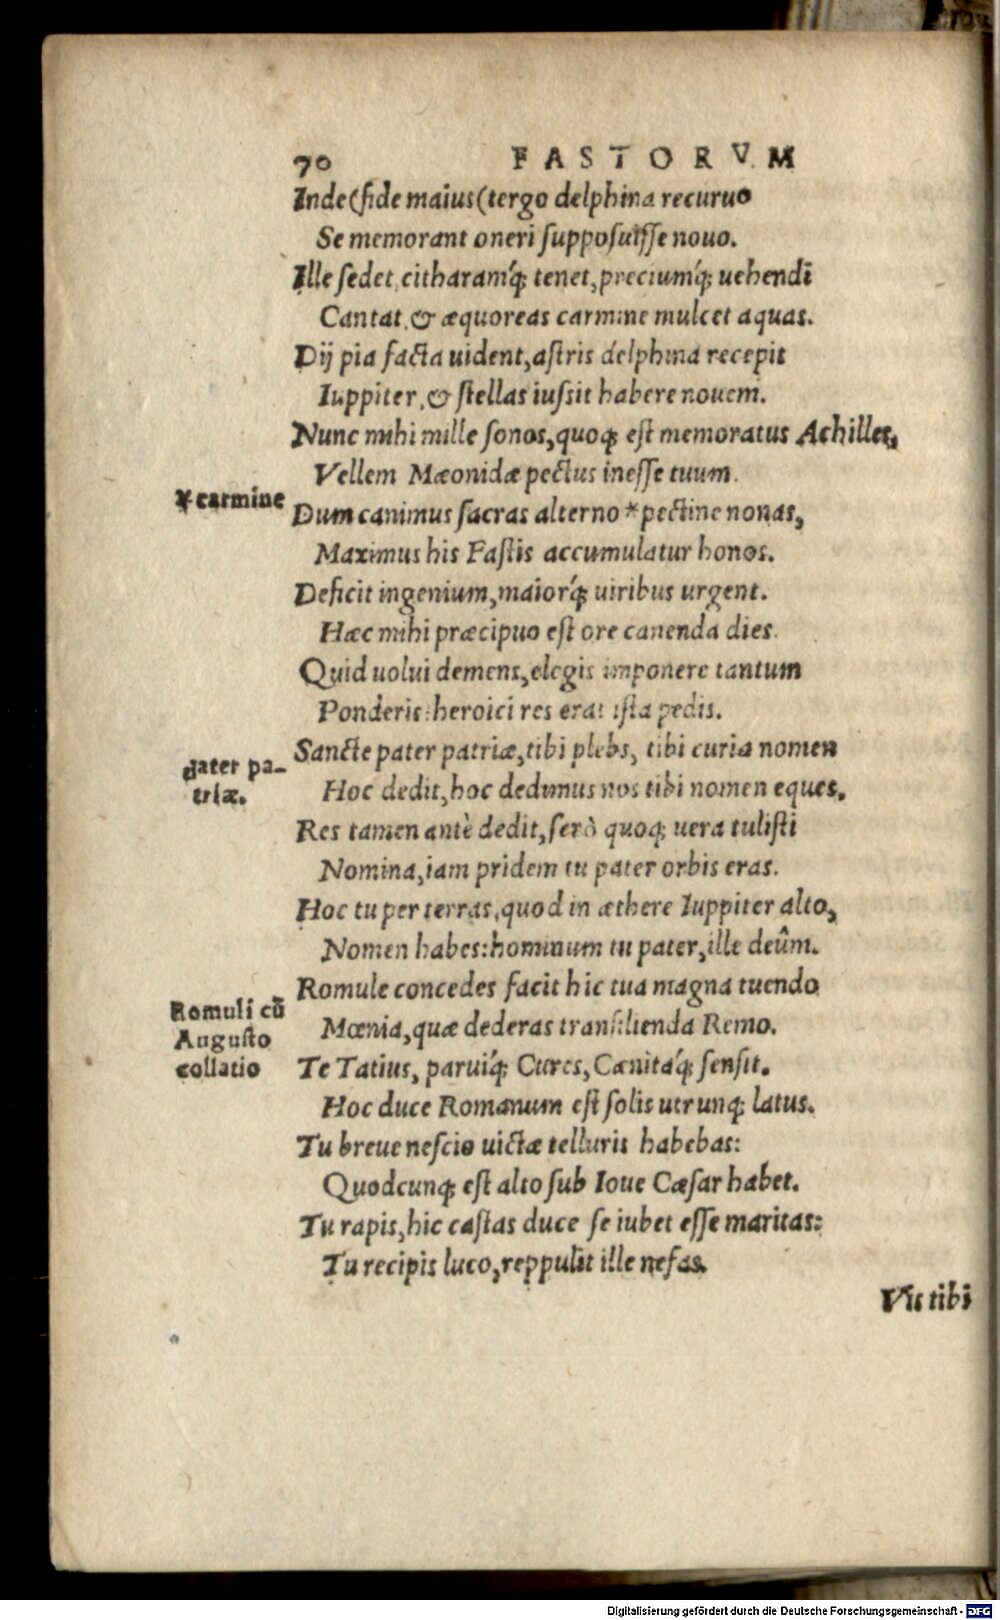 70 FASTORVM
Inde (fide maius (tergo delphina recuruo
Se memorant oneri supposuisse nouo.
Ille sedet, citharamq́; tenet, preciumq́; uehendi
Cantat, & æquoreas carmine mulcet aquas.
Dij pia facta uident, astris delphina recepit
Iuppiter, & stellas iussit habere nouem.
Nunc mihi mille sonos, quoq; est memoratus Achilles,
Vellem Mæonidæ pectus inesse tuum.
* carmine
Dum canimus sacras alterno * pectine nonas,
Maximus his Fastis accumulatur honos.
Deficit ingenium, maiorq́; uiribus urgent.
Hæc mihi præcipuo est ore canenda dies.
Quid uolui demens, elegis imponere tantum
Ponderis: heroici res erat ista pedis.
Sancte pater patriæ, tibi plebs, tibi curia nomen
Pater pa-
triæ.
Hoc dedit, hoc dedimus nos tibi nomen eques.
Res tamen antè dedit, serò quoq; uera tulisti
Nomina, iam pridem tu pater orbis eras.
Hoc tu per terras, quod in æthere Iuppiter alto,
Nomen habes: hominum tu pater, ille deûm.
Romule concedes facit hic tua magna tuendo
Romuli cū
Augusto
collatio
Mœnia, quæ dederas transilienda Remo.
Te Tatius, paruiq́; Cures, Cænitáq; sensit.
Hoc duce Romanum est solis utrunq; latus.
Tu breue nescio uictæ telluris habebas:
Quodcunq; est alto sub Ioue Cæsar habet.
Tu rapis, hic castas duce se iubet esse maritas:
Tu recipis luco, reppulit ille nefas.
Vis tibi
Digitalisierung gefördert durch die Deutsche Forschungsgemeinschaft - DFG